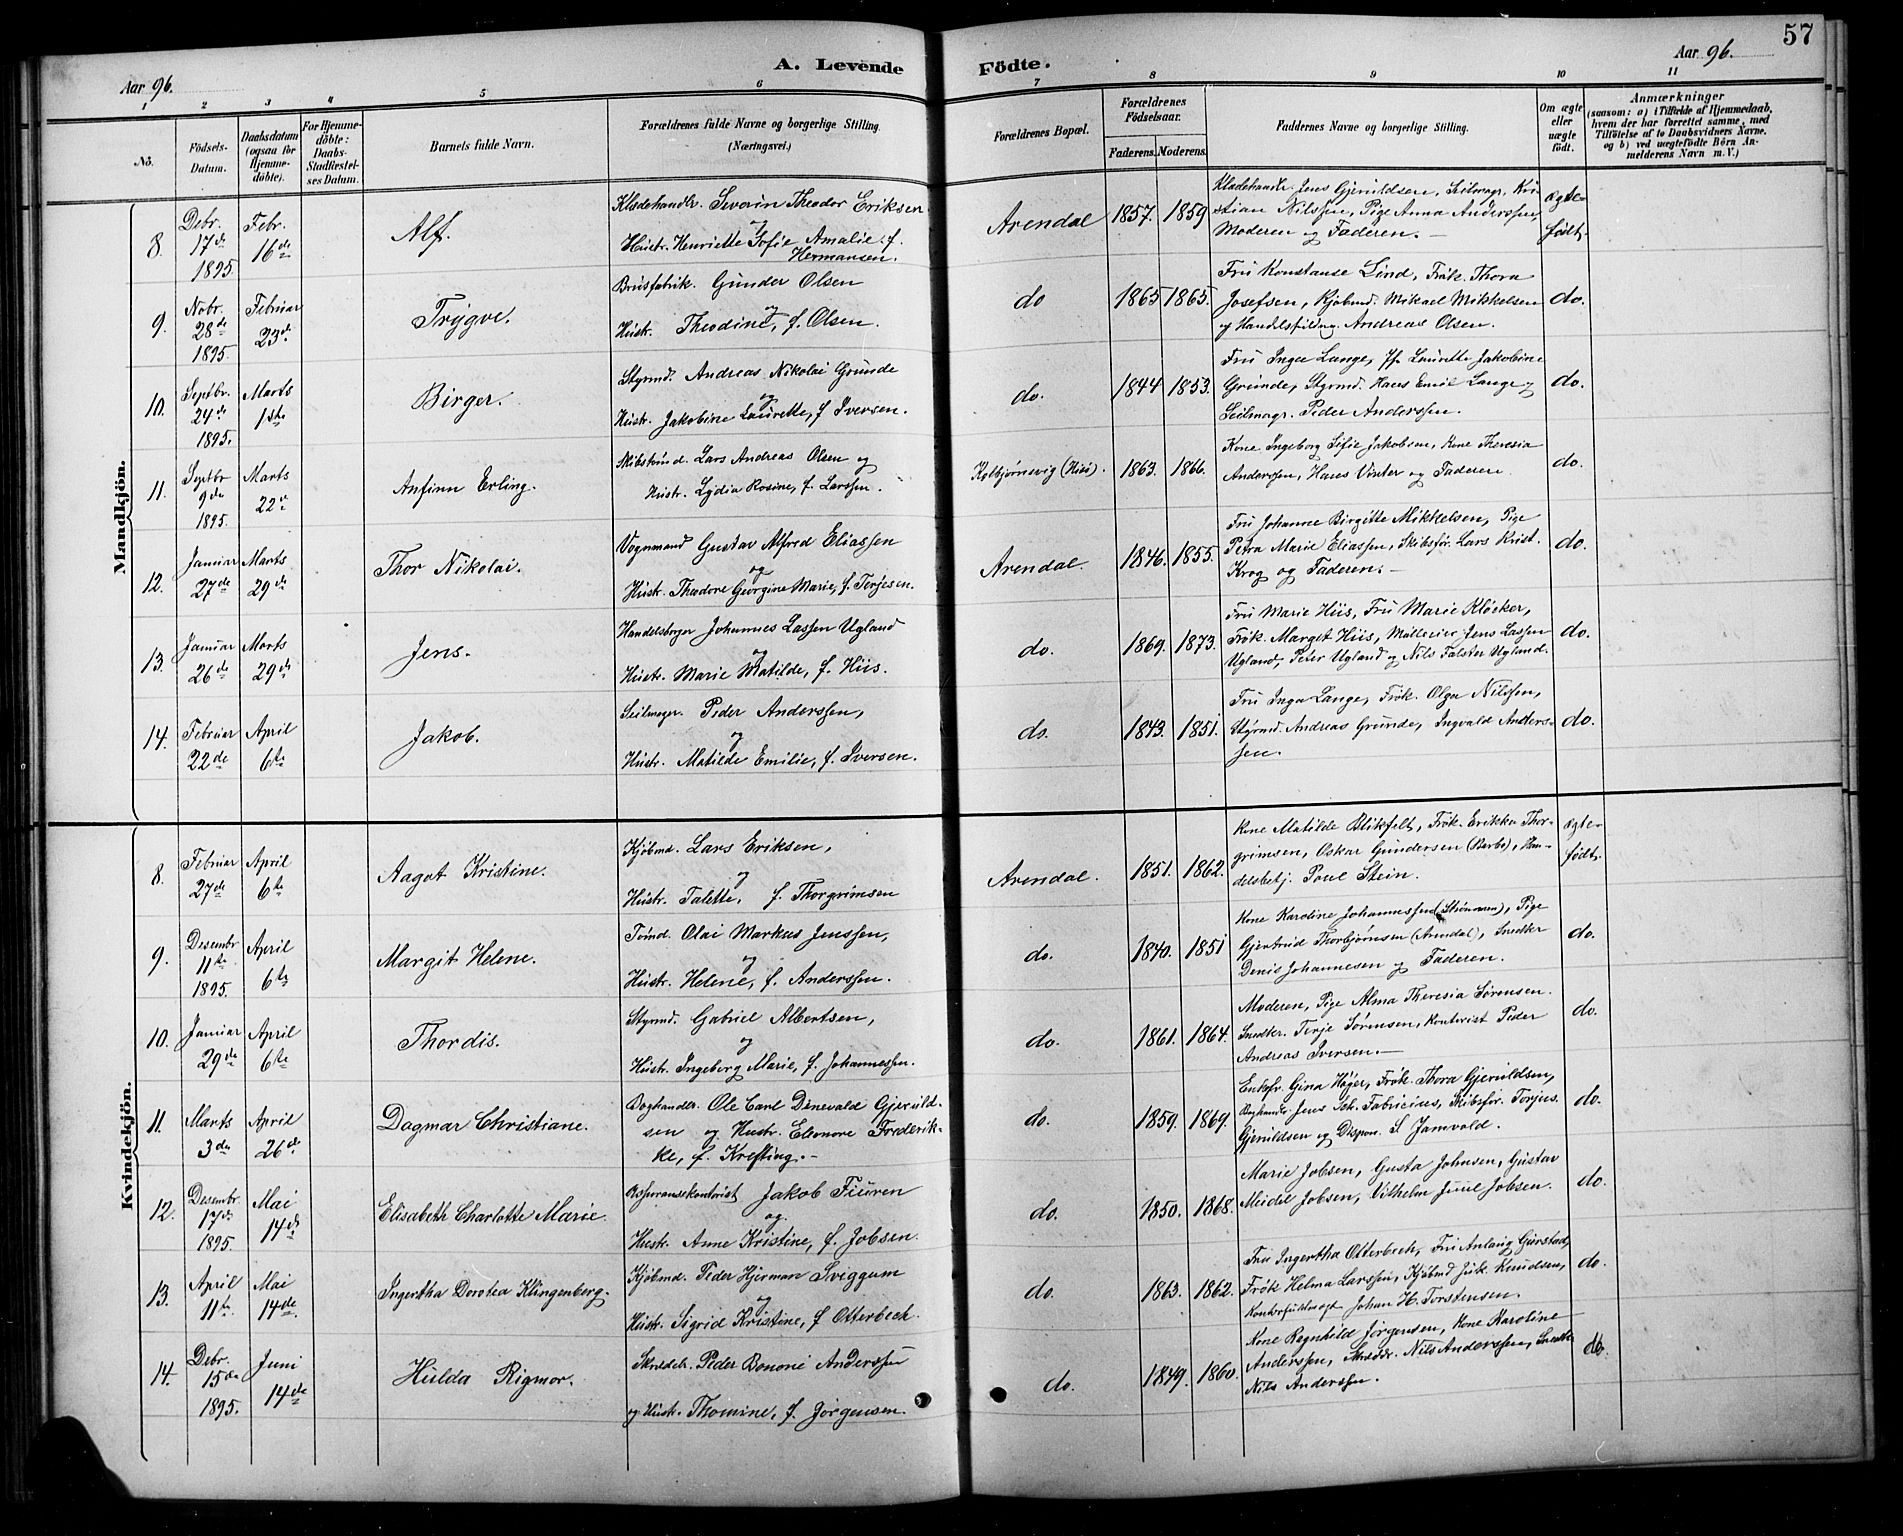 57
Aar 96.
A. Levende
Födte.
Aar 96.
1 2 3 4 5 6 7 8 9 10 11
No.
Födsels-
Datum.
Daabsdatum
(ogsaa for
Hjemme-
döbte).
For Hjemme-
döbte:
Daabs-
Stadfæstel-
ses Datum.
Barnets fulde Navn.
Forældrenes fulde Navne og borgerlige Stilling.
(Næringsvei.)
Forældrenes Bopæl.
Forældrenes
Födselsaar.
Faderens. Moderens.
Faddernes Navne og borgerlige Stilling.
Om ægte
eller
uægte
født.
Anmærkninger
(saasom: a) i Tilfælde af Hjemmedaab,
hvem der har forrettet samme, med
Tilföielse af to Daabsvidners Navne.
og b) ved uægtefödte Börn An-
melderens Navn m. V.)
Mandkjön.
8.
Debr.
17de
1895.
Febr.
16de
Alf.
Klædehandlr. Severin Theodor Eriksen
og
Hustr. Henriette Sofie Amalie f.
Hermansen.
Arendal
1857. 1859
Klædehandlr. Jens Gjeruldsen, Seilmagr. Kri-
stian Nilssen, Pige Anna Anderssen,
Moderen og Faderen. —
ægte-
født.
9.
Nobr.
28de
1895.
Februar
23de
Trygve.
Brusfabrik. Gunder Olsen
og
Hustr. Theodine, f. Olsen.
do
1865 1865.
Fru Konstanse Lind, Frøk. Thora
Josefsen, Kjøbmd. Mikael Mikkelsen
og Handelsfuldmg. Andreas Olsen.
do.
10.
Septbr.
24de
1895.
Marts
1ste
Birger.
Styrmd. Andreas Nikolai Grunde
og
Hustr. Jakobine Laurette, f Iversen.
do.
1844 1853.
Fru Inga Lange, Jfr. Laurette Jakobine
Grunde, Styrmd. Hans Emil Lange og
Seilmagr. Peder Anderssen.
do.
11.
Septbr
9de
1895.
Marts
22de
Anfinn Erling.
Skibstmd. Lars Andreas Olsen og
Hustr. Lydia Rosine, f. Larssen.
Kolbjørnsvig (Hisø).
1863. 1866.
Kone Ingeborg Sofie Jakobsen, Kone Theresia
Anderssen, Hans Vinter og Faderen.
do.
12.
Januar
27de
Marts
29de
Thor Nikolai.
Vognmand Gustav Alfred Eliassen
og
Hustr. Theodore Georgine Marie, f. Terjesen.
Arendal.
1846. 1855.
Fru Johanne Birgitte Mikkelsen, Pige
Petra Marie Eliassen, Skibsfør. Lars Krist.
Krog og Faderen. —
do.
13.
Januar
26de
Marts
29de
Jens.
Handelsborger Johannes Lassen Ugland
og
Hustr. Marie Matilde, f. Hiis.
do.
1869. 1873.
Fru Marie Hiis, Fru Marie Kløcker,
Frøk. Margit Hiis, Møllereier Jens Lassen
Ugland, Peter Ugland og Nils Falster Ugland.
do.
14.
Februar
22de
April
6te
Jakob.
Seilmager. Peder Anderssen,
og
Hustr. Matilde Emilie, f. Iversen.
do.
1843. 1851.
Fru Inga Lange, Frøk. Olga Nilssen,
Styrmd. Andreas Grunde, Ingvald Anders-
sen.
do.
Kvindekjön.
8.
Februar
27de
April
6te
Aagot Kristine.
Kjøbmd. Lars Eriksen,
og
Hustr. Talette, f. Thorgrimsen
Arendal.
1851. 1862.
Kone Matilde Blikfelt, Frøk. Erikka Thor-
grimsen, Oskar Gundersen (Barbo), Han-
delsbetj. Poul Stein.
ægte-
født.
9.
Desembr
11te
1895.
April
6te
Margit Helene.
Tømd. Olai Markus Jenssen,
og
Hustr. Helene, f. Anderssen.
do.
1840. 1851
Kone Karoline Johannessen (Strømmen), Pige
Gjertrud Thorbjørnsen (Arendal), Snedker
Denis Johannesen og Faderen.
do.
10.
Januar
29de
April
6te
Thordis.
Styrmd. Gabriel Albertsen,
og
Hustr. Ingeborg Marie, f. Johannessen.
do.
1861. 1864.
Moderen, Pige Alma Theresia Sørensen.
Snedkr. Terje Sørensen, Kontorist Peder
Andreas Iversen. —
do.
11.
Marts
3de
April
26de
Dagmar Christiane.
Boghandlr. Ole Carl Dinevald Gjeruld-
sen og Hustr. Eleonore Frederik-
ke, f. Krefting. —
do.
1859. 1869.
Enkefr. Gina Høyer, Frøk. Thora Gjeruldsen,
Boghandlr. Jens Chr. Fabricius, Skibsfør. Torjus
Gjeruldsen og Dispon. S Jamvold.
do.
12.
Desembr.
17de
1895.
Mai
14de
Elisabeth Charlotte Marie.
Assuransekontorist Jakob Fiuren
og
Hustr. Anne Kristine, f. Jobsen.
do.
1850. 1868.
Marie Jobsen, Gusta Johnsen, Gustav
Meidel Jobsen, Vilhelm Juul Jobsen.
do.
13.
April
11te
Mai
14de
Ingertha Dorotea Klingenberg.
Kjøbmd. Peder Hjerman Sviggum
og
Hustr. Sigrid Kristine, f Otterbech.
do.
1863. 1862.
Fru Ingertha Otterbech, Fru Anlaug Gjerstad,
Frøk Helma Larssen, Kjøbmd Juk. Knudsen,
Kontorfuldmægt Johan H. Torstensen.
do.
14.
Debr.
15de
1895.
Juni
14de
Hulda Rigmor.
Skrædr. Peder Bononi Anderssen
og Hustr. Thomine, f. Jørgensen.
do.
1849. 1860.
Kone Regnhild Jørgensen, Kone Karoline
Anderssen, Skræddr. Nils Anderssen, Snedkr
Nils Anderssen.
do.